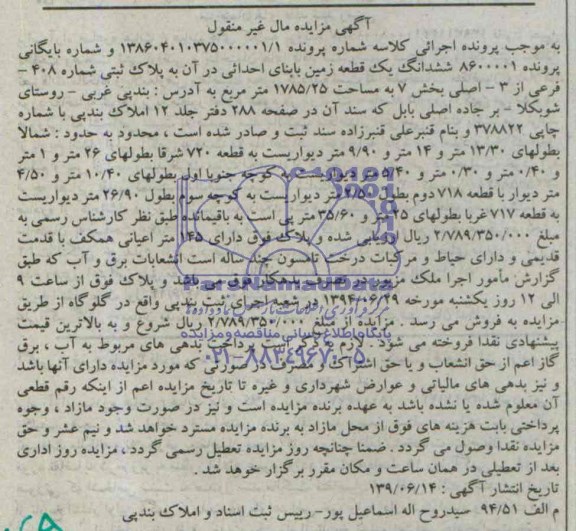 آگهی مزایده مال غیر منقول
به موجب پرونده اجرائی کلاسه شماره پرونده ۱۳۸۶۰۴۰۱۰۳۷۵۰۰۰۰۰۱/۱ و شماره بایگانی
پرونده ۸۶۰۰۰۰۱ ششدانگ یک قطعه زمین بابنای احداثی در آن به پلاک ثبتی شماره ۴۰۸ –
فرعی از ۳ – اصلی بخش ۷ به مساحت ۱۷۸۵/۲۵ متر مربع به آدرس : بندپی غربی – روستای
شوبکلا – بر جاده اصلی بابل که سند آن در صفحه ۲۸۸ دفتر جلد ۱۲ املاک بندپی با شماره
چاپی ۳۷۸۸۲۲ و بنام قنبرعلی قنبرزاده سند ثبت و صادر شده است ، محدود به حدود : شمالا
بطولهای ۱۳/۳۰ متر و ۱۴ متر و ۹/۹۰ متر دیواریست به قطعه ۷۲۰ شرقا بطولهای ۲۶ متر و ۱ متر
و ۰/۴۰ متر و ۰/۳۰ متر و ۵/۴۰ متر دیواریست به کوچه جنوبا اول بطولهای ۱۰/۴۰ متر و ۴/۵۰
متر دیوار با قطعه ۷۱۸ دوم بطول متر دیواریست به کوچه سوم بطول ۲۶/۹۰ متر دیواریست
به قطعه ۷۱۷ غربا بطولهای ۲۵ متر و ۳۵/۶۰ متر پی است به باقیمانده طبق نظر کارشناس رسمی به
مبلغ ۲/۷۸۹/۳۵۰/۰۰۰ ریال ارزیابی شده و پلاک فوق دارای ۱۴۵ متر اعیانی همکف با قدمت
قدیمی و دارای حیاط و مرکبات درخت تامسون چند ساله است انشعابات برق و آب که طبق
گزارش مأمور اجرا ملک مزبور در تصرف بدهکار فوق می باشد و پلاک فوق از ساعت ۹
الی ۱۲ روز یکشنبه مورخه ۱۳۹۴/۰۶/۲۹ در شعبه اجرای ثبت بندپی واقع در گلوگاه از طریق
مزایده به فروش می رسد . مزایده از مبلغ ۲/۷۸۹/۳۵۰/۰۰۰ ریال شروع و به بالاترین قیمت
پیشنهادی نقدا فروخته می شود . لازم به ذکر است پرداخت بدهی های مربوط به آب ، برق
گاز اعم از حق انشعاب و یا حق اشتراک و مصرف در صورتی که مورد مزایده دارای آنها باشد
و نیز بدهی های مالیاتی و عوارض شهرداری و غیره تا تاریخ مزایده اعم از اینکه رقم قطعی
آن معلوم شده یا نشده باشد به عهده برنده مزایده است و نیز در صورت وجود مازاد ، وجوه
پرداختی بابت هزینه های فوق از محل مازاد به برنده مزایده مسترد خواهد شد و نیم عشر و حق
مزایده نقدا وصول می گردد . ضمنا چنانچه روز مزایده تعطیل رسمی گردد ، مزایده روز اداری
بعد از تعطیلی در همان ساعت و مکان مقرر برگزار خواهد شد .
تاریخ انتشار آگهی : ۱۳۹/۰۶/۱۴
م الف ۹۴/۵۱ سیدروح اله اسماعیل پور– رییس ثبت اسناد و املاک بندپی
پایگاه اطلاع رسانی مناقصه و مزایده
۰۲۱-۸۸۳۴۹۶۷۰-۵